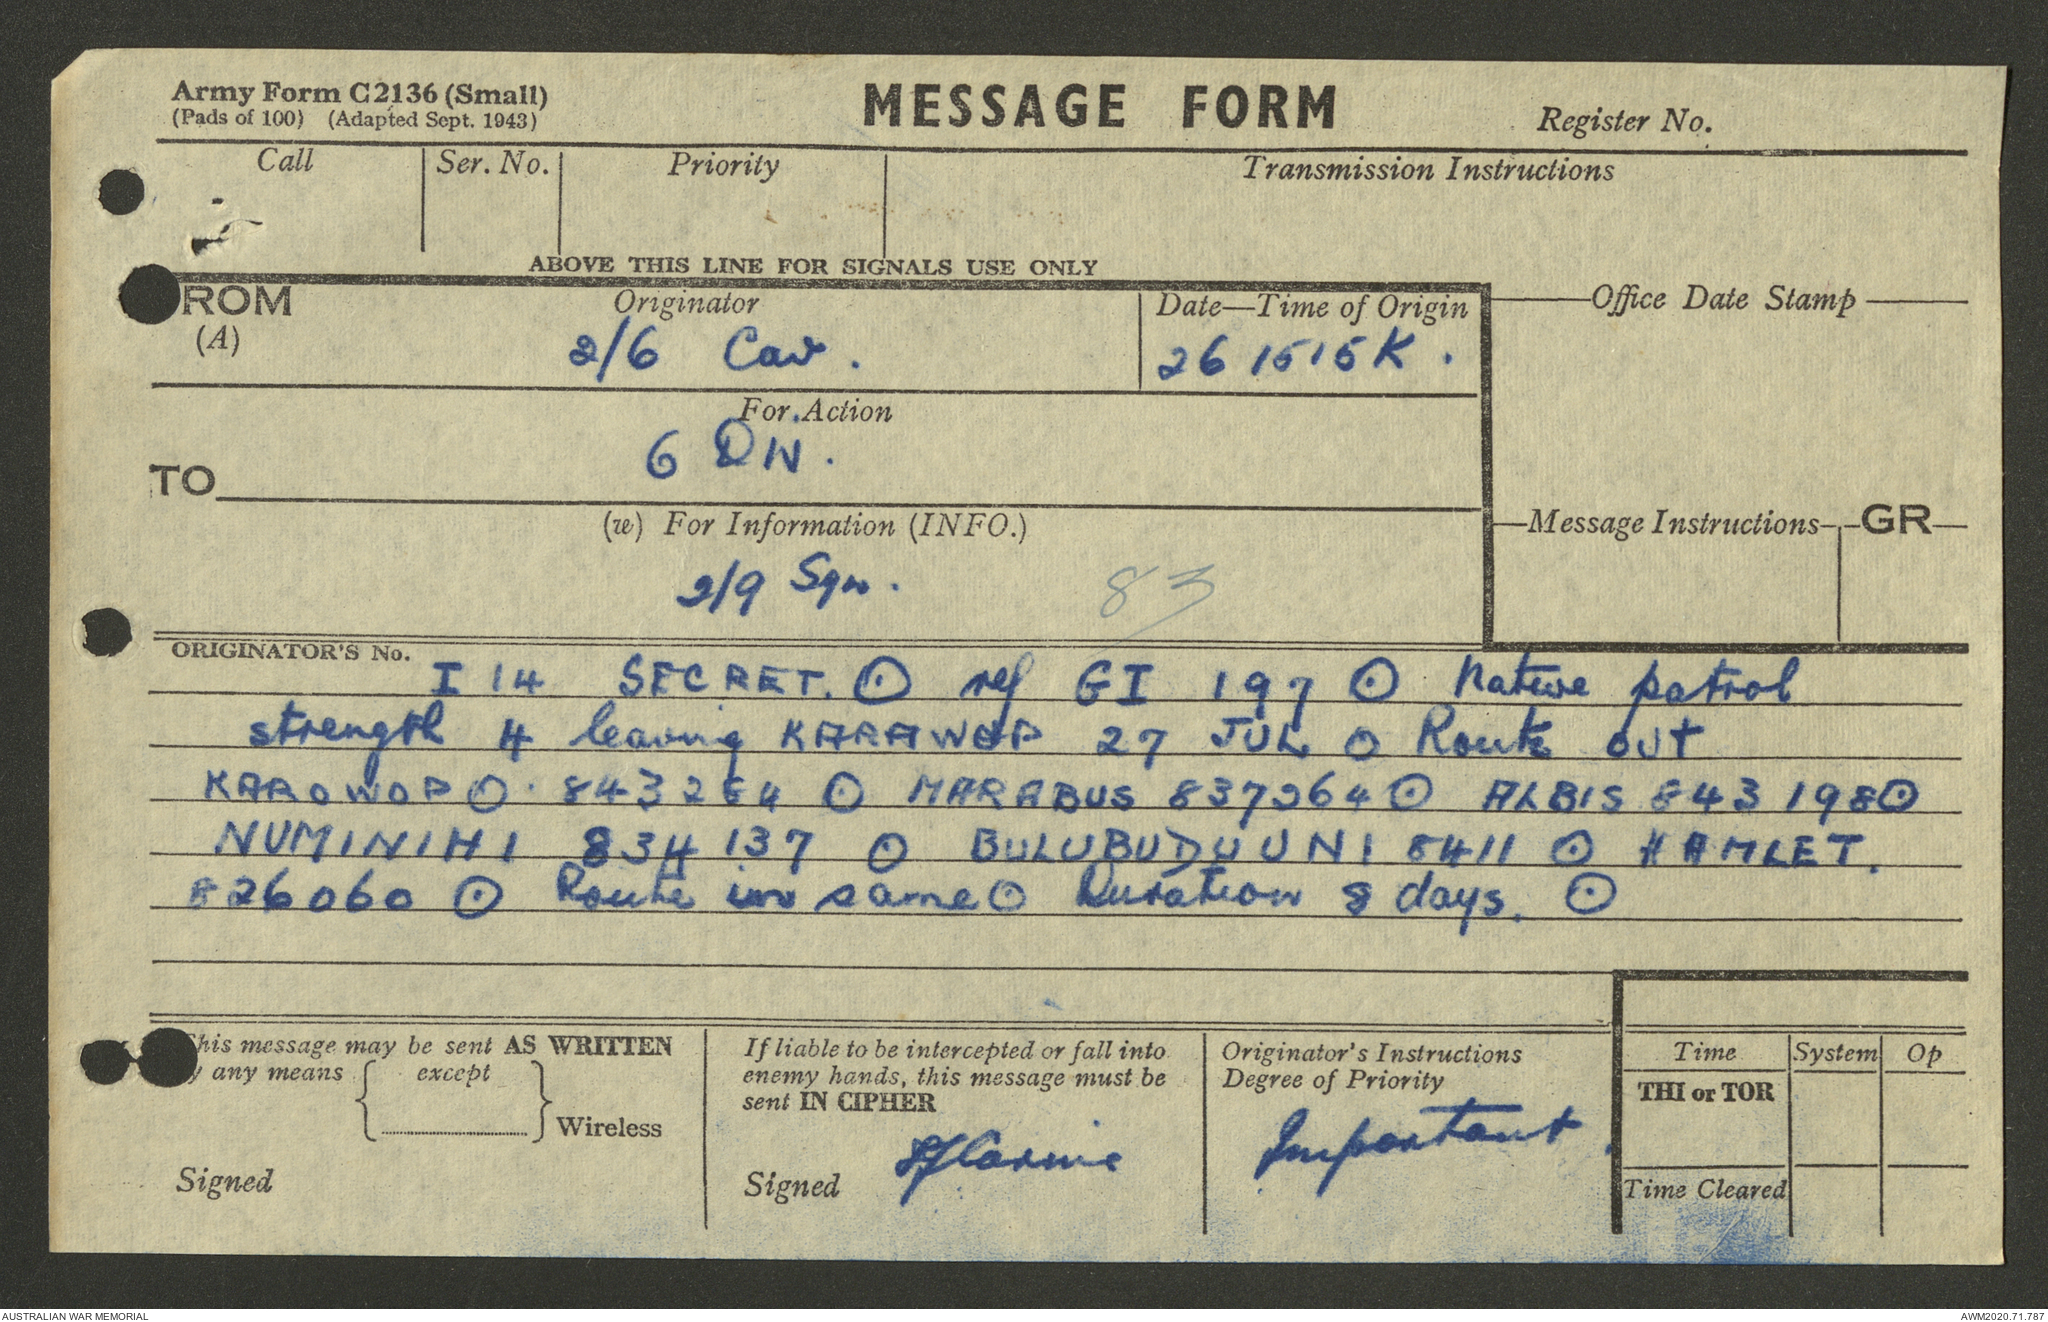 Army Form C2136 (Small)
(Pads of 100) (Adapted Sept. 1943)
MESSAGE FORM
Register No.
Call
Ser. No.
Priority
Transmission Instructions
ABOVE THIS LINE FOR SIGNALS USE ONLY
ROM
(A)
Originator
2/6 Cav.
Date—Time of Origin
26 1515K.
Office Date Stamp
For Action
6 DIV.
TO
(w) For Information (INFO.)
2/9 Sqn.
83
Message Instructions
GR
ORIGINATOR'S No.
I 14 SECRET. ⊙ ref GI 197 ⊙ Native patrol
strength 4 leaving KARAWOP 27 JUL ⊙ Route out
KAROWOP ⊙ 843264 ⊙ MARABUS 837264 ⊙ ALBIS 843198 ⊙
NUMINIHI 834137 ⊙ BULUBUDUUNI 8411 ⊙ HAMLET.
826060 ⊙ Route in same ⊙ Duration 8 days. ⊙
his message may be sent AS WRITTEN
y any means { except
} Wireless
Signed
If liable to be intercepted or fall into
enemy hands, this message must be
sent IN CIPHER
Signed
Originator's Instructions
Degree of Priority
Important.
Time
System
Op
THI or TOR
Time Cleared
AUSTRALIAN WAR MEMORIAL
AWM2020.71.787